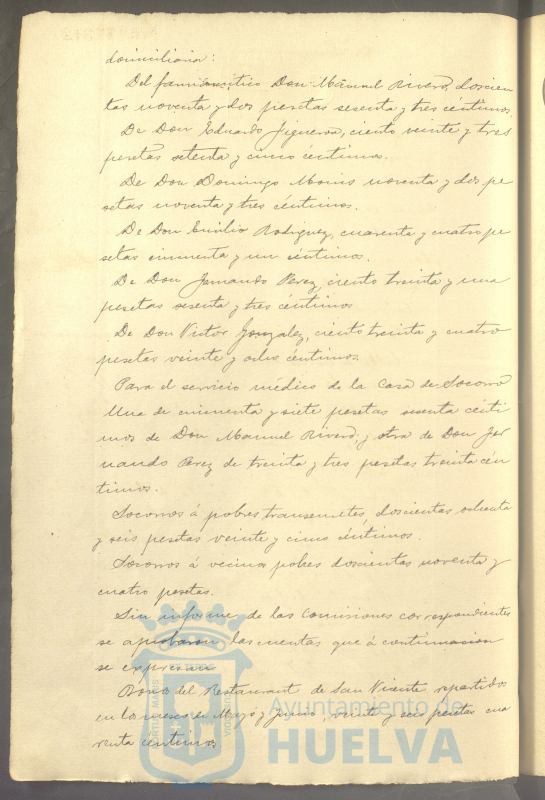 domiciliaria:
Del farmacéutico Don Manuel Rivero, doscien
tas noventa y dos pesetas sesenta y tres céntimos.
De Don Eduardo Figueroa, ciento veinte y tres
pesetas setenta y cinco céntimos.
De Don Domingo noventa y dos pe
setas noventa y tres céntimos.
De Don Emilio Rodriguez, cuarenta y cuatro pe
setas cincuenta y un céntimos.
De Don Fernando Perez, ciento treinta y una
pesetas sesenta y tres céntimos
De Don Victor Gonzalez, ciento treinta y cuatro
pesetas veinte y ocho céntimos.
Para el servicio médico de la Casa de Socorro
Una de cincuenta y siete pesetas sesenta cénti
mos de Don Manuel Rivero, y otra de Don Fer
nando Perez de treinta y tres pesetas treinta cén
timos.
Socorros á pobres transeuntes doscientas ochenta
y seis pesetas veinte y cinco céntimos.
Socorros á vecinos pobres doscientas noventa y
cuatro pesetas.
Sin informe de las Comisiones correspondientes
se aprobaron las cuentas que á continuacion
se expresan
Bonos del Restaurant de San Vicente repartidos
en los meses de Mayo y Junio, veinte y seis pesetas cua
renta céntimos
PORTUS MARIS
CUSTODIA
Ayuntamiento de
HUELVA